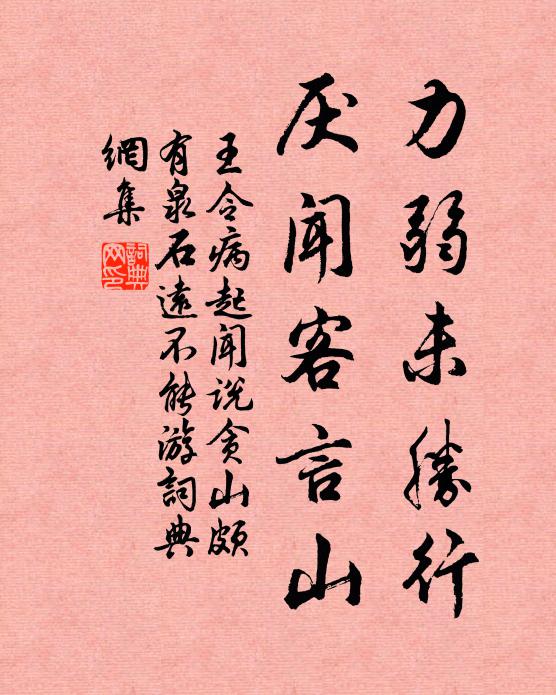 力弱未勝行
厌闻客言山
王令病起闻说贪山颇
有泉石遠不能游詞典
網集
詞典
网印